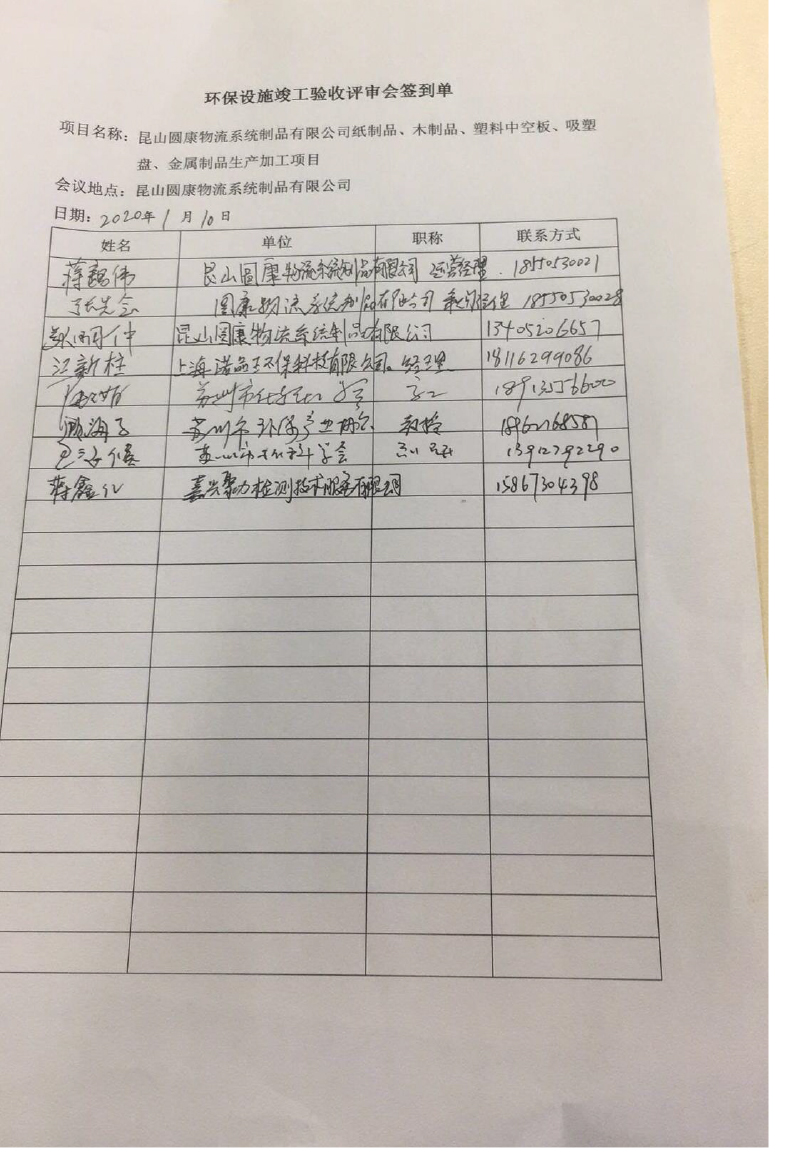 环保设施竣工验收评审会签到单
项目名称：昆山圆康物流系统制品有限公司纸制品、木制品、塑料中空板、吸塑
盘、金属制品生产加工项目
会议地点：昆山圆康物流系统制品有限公司
日期：2020年1月10日
姓名 单位 职称 联系方式
昆山圆康物流系统制品有限公司 运营经理 18550530021
圆康物流系统制品有限公司 18550530028
昆山圆康物流系统制品有限公司 13405206657
江新柱 上海诺品环保科技有限公司 经理 18116299086
高工 18913556600
苏州市环保产业协会 18962168587
13912792290
蒋鑫 嘉兴聚力检测技术服务有限公司 15867304398